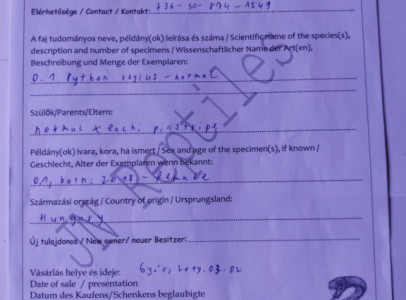 Elérhetősége / Contact / Kontakt: +36-30-874-1549
A faj tudományos neve, példány(ok) leírása és száma / Scientific name of the species(s),
description and number of specimens / Wissenschaftlicher Name der Art(en),
Beschreibung und Menge der Exemplaren:
0.1 Python regius - normal
Szülők/Parents/Eltern:
normal x ench. pinstripe
Példány(ok) ivara, kora, ha ismert / Sex and age of the specimen(s), if known /
Geschlecht, Alter der Exemplaren wenn bekannt:
0.1, born: 2018 - female
Származási ország / Country of origin / Ursprungsland:
Hungary
Új tulajdonos / New owner/ neuer Besitzer:
Vásárlás helye és ideje: Győr, 2019.03.02
Date of sale / presentation
Datum des Kaufens/Schenkens beglaubigte
JN Reptiles